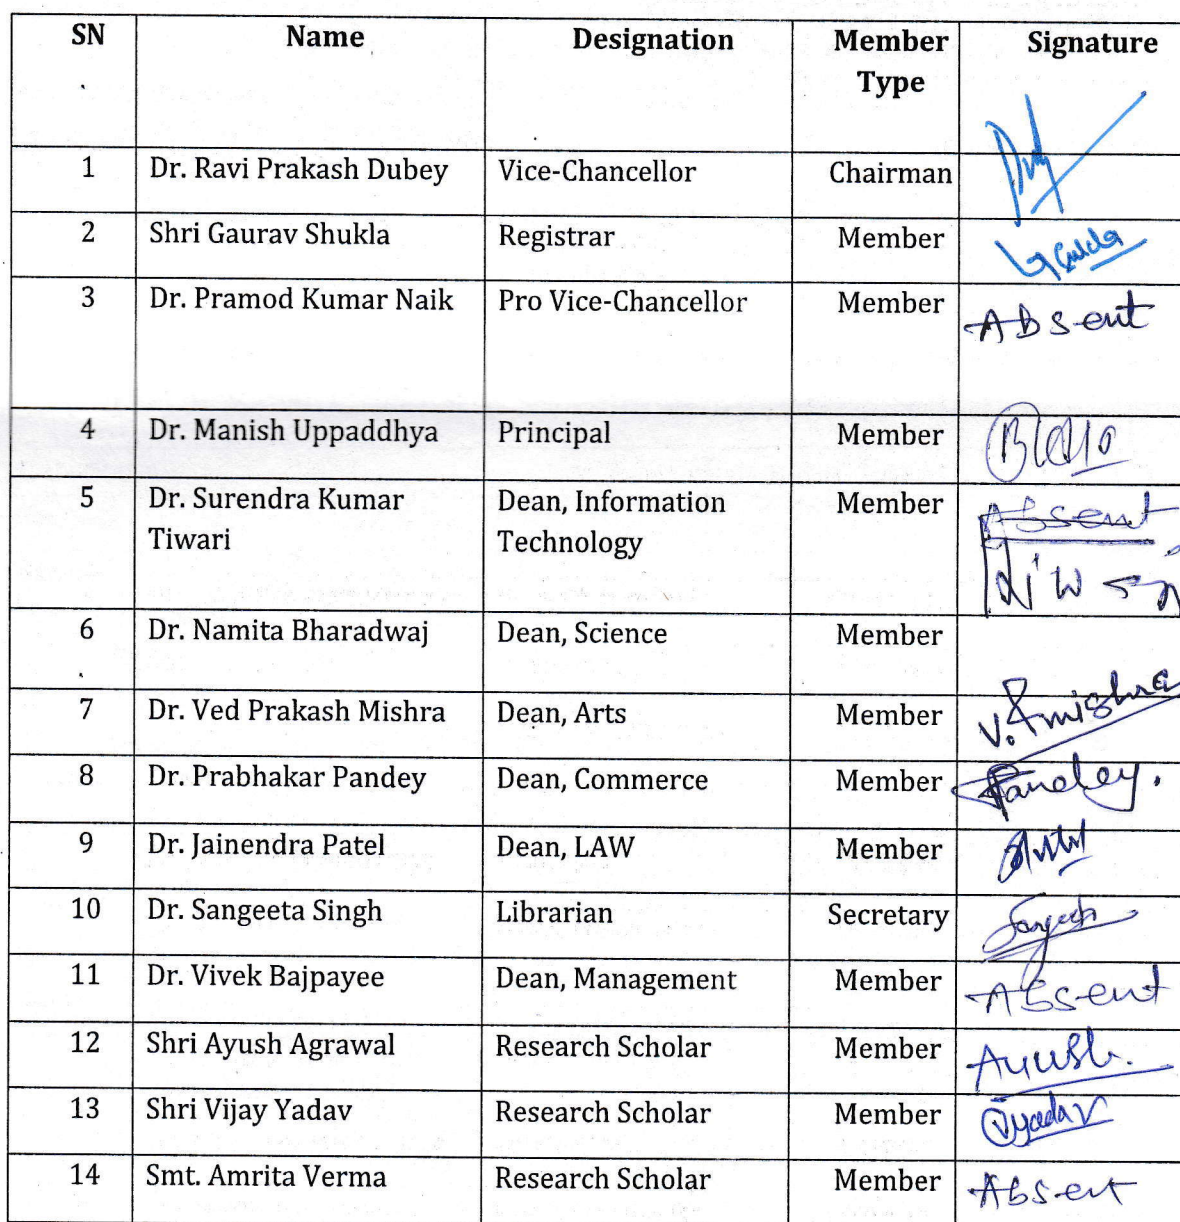 SN Name Designation Member Type Signature
1 Dr. Ravi Prakash Dubey Vice-Chancellor Chairman
2 Shri Gaurav Shukla Registrar Member
3 Dr. Pramod Kumar Naik Pro Vice-Chancellor Member Absent
4 Dr. Manish Uppaddhya Principal Member
5 Dr. Surendra Kumar Tiwari Dean, Information Technology Member Absent
6 Dr. Namita Bharadwaj Dean, Science Member
7 Dr. Ved Prakash Mishra Dean, Arts Member V. P mishra
8 Dr. Prabhakar Pandey Dean, Commerce Member Pandey.
9 Dr. Jainendra Patel Dean, LAW Member
10 Dr. Sangeeta Singh Librarian Secretary
11 Dr. Vivek Bajpayee Dean, Management Member Absent
12 Shri Ayush Agrawal Research Scholar Member Ayush.
13 Shri Vijay Yadav Research Scholar Member Vyadav
14 Smt. Amrita Verma Research Scholar Member Absent